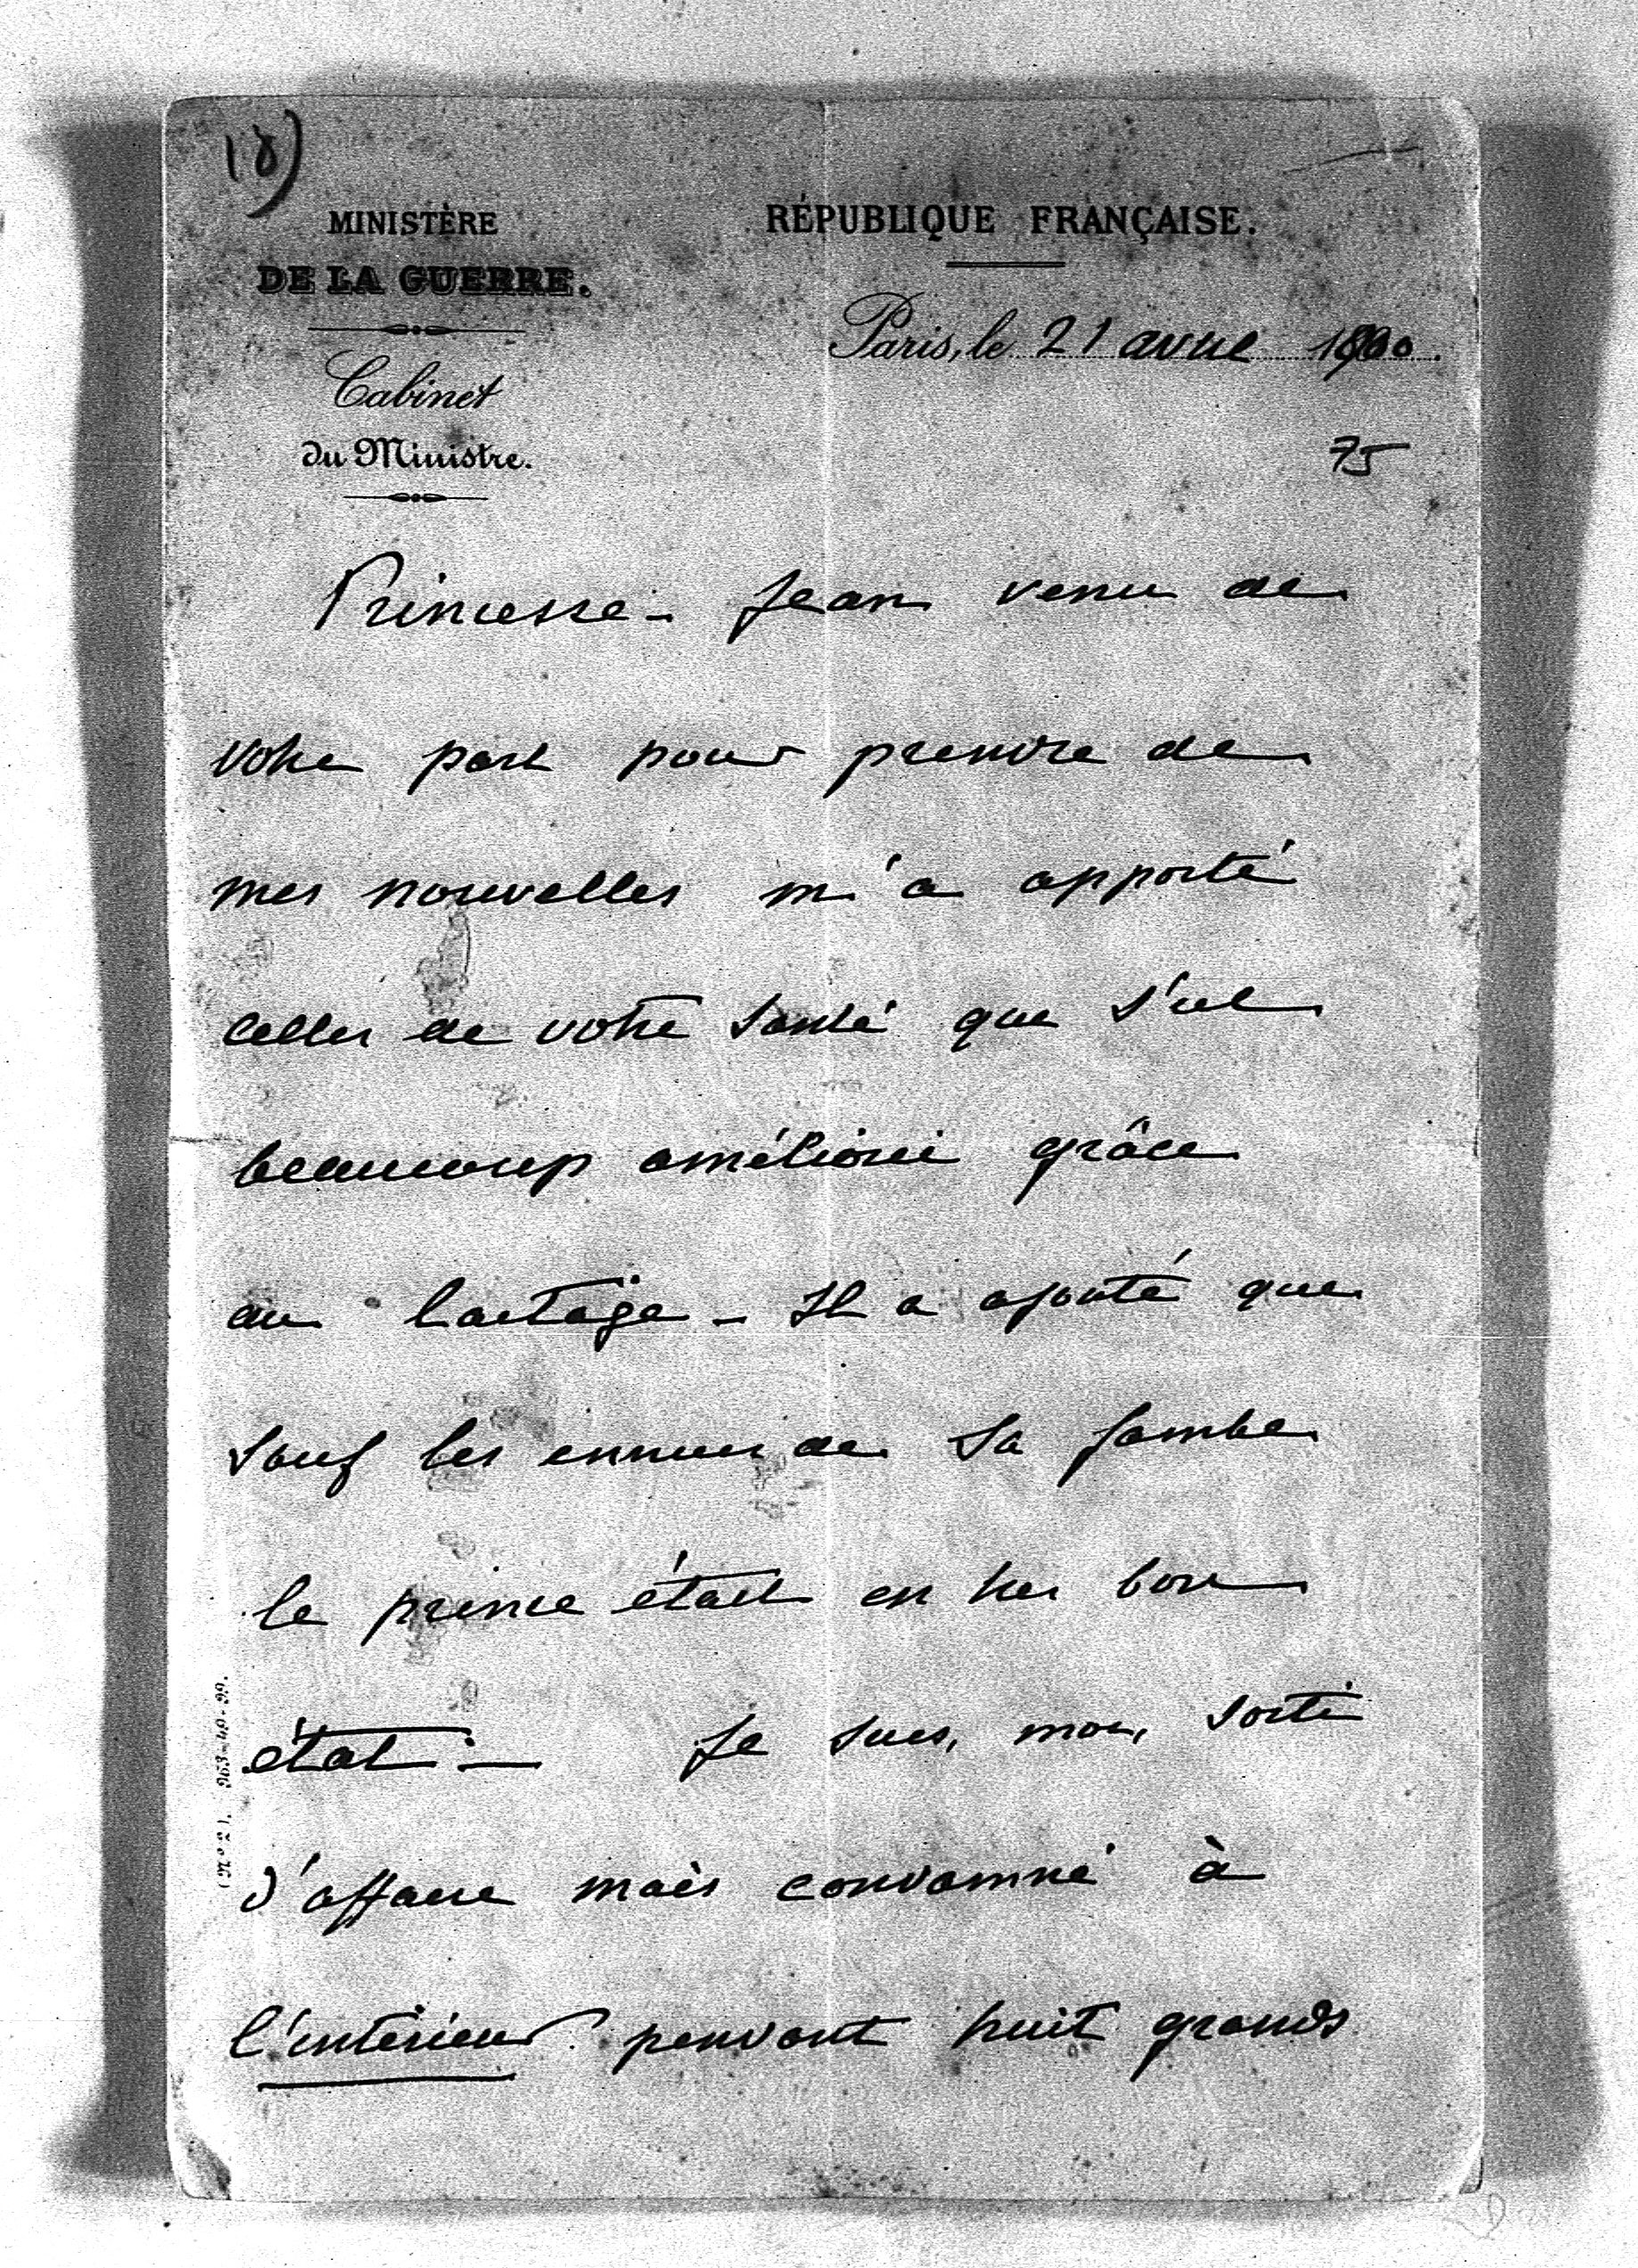 18)
MINISTÈRE
DE LA GUERRE.
Cabinet
du Ministre.
RÉPUBLIQUE FRANÇAISE.
Paris, le 21 avril 1900.
75
Princesse - Jean venu de
votre part pour prendre de
mes nouvelles m'a apporté
celles de votre santé que s'est
beaucoup améliorée grâce
au laitage - Il a ajouté que
sauf les ennuis de sa jambe
le prince était en très bon
état - Je suis, moi, sorti
d'affaire mais condamné à
l'intérieur pendant huit grands
(N° 2). 963-40-99.